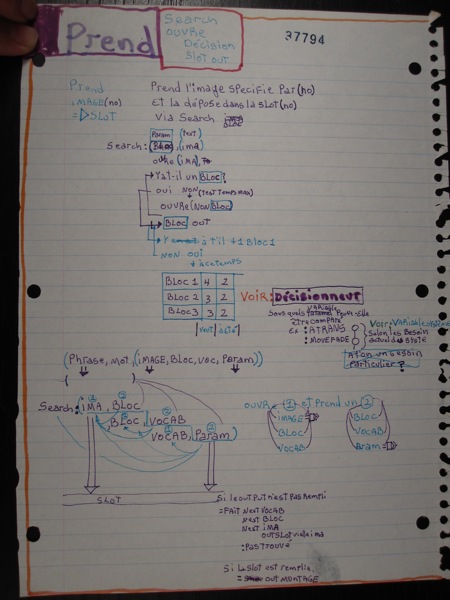 Prend
Search
OUVRE
Décision
SLOT OUT
37794
Prend
iMAGE(no)
=▷SLOT
Prend l'image SPéciFie Par(no)
Et la dépose dans la SLot(no)
Via Search
Param (text)
Search: (Bloc), (ima
ouvre (iMA),
Yat-il un BLOC?
oui NON (TEST TEMPS MAX)
OUVRE(NON BLOC)
BLOC OUT
à t'il +1 BLOC 1
NON OUi
BLOC 1 4 2
BLOC 2 3 2
BLOC 3 3 2
VOIR: Décisionneur
variable
ETRE COMPATE
EX: ATRANS
: NOVEFADE
Voir: VARIABLE SYSTEME
Selon les Besoin
actuel des SLOTE
A-t-on un Besoin
Particulier?
(Phrase, mot, iMAGE, BLoc, voc, Param))
( )
Search: (iMA, BLOC
BLOC, VOCAB
VOCAB, Param)
SLOT
OUVRE (1) et Prend un (2)
iMAGE
BLOC
VOCAB
BLOC
VOCAB
aram
Si le out Put n'est Pas Rempli
=FAIT NexT VOCAB
NexT BLOC
NexT iMA
OUTSLOT vide ima
:PAS TROUVÉ
Si la slot est remplie,
= OUT MONTAGE